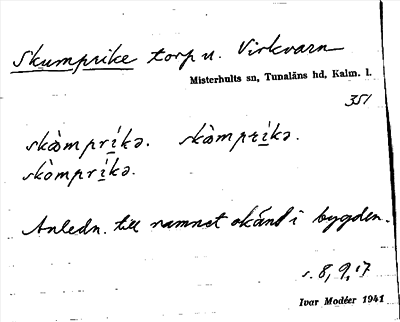 Skumprike torp u. Virkvarn
Misterhults sn, Tunaläns hd, Kalm. l.
351
skòmpríkə. skòmpríkə.
skòmpríkə.
Anledn. till namnet okänd i bygden.
s. 8, 9, 17
Ivar Modéer 1941